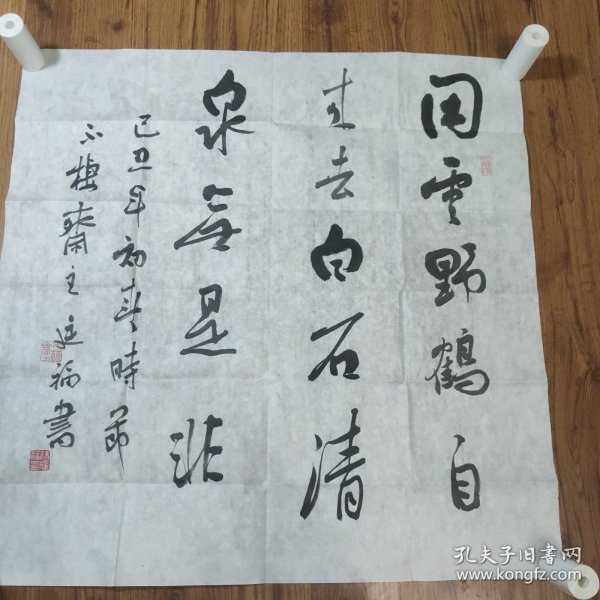 闲云野鹤自
来去白石清
泉無是非
己丑年初春時節
不梅齋主廷福書
孔夫子旧书网
www.kongfz.com